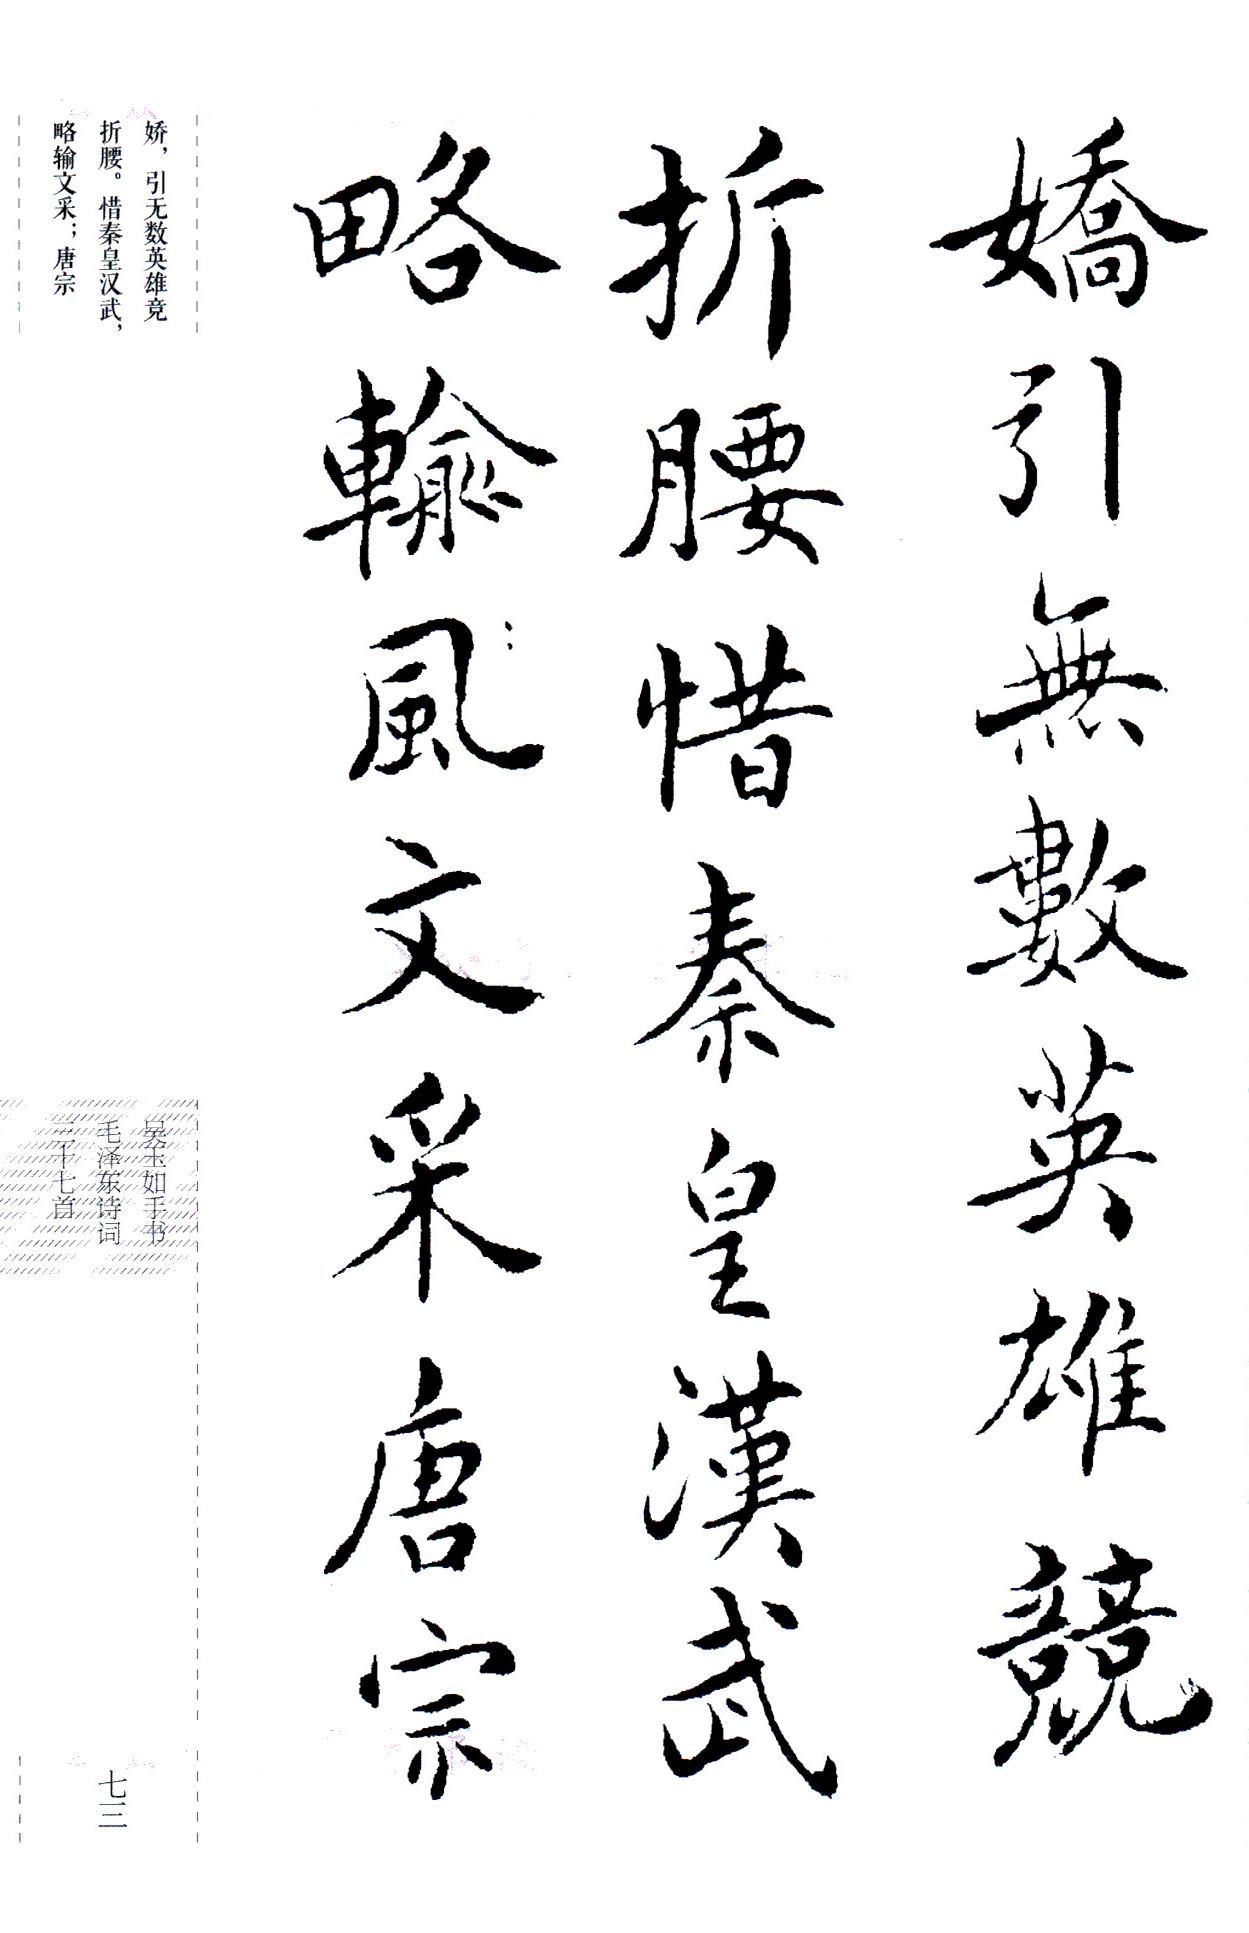 嬌引無數英雄競
折腰惜秦皇漢武
略輸風文采唐宗
娇，引无数英雄竞
折腰。惜秦皇汉武，
略输文采；唐宗
吴玉如手书
毛泽东诗词
三十七首
七三